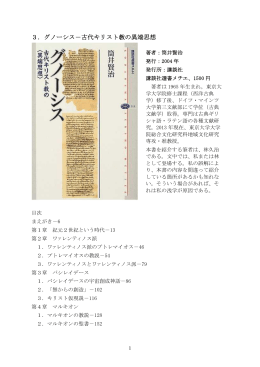 ３．グノーシス－古代キリスト教の異端思想
グノーシス
古代キリスト教の
〈異端思想〉
筒井賢治
著者：筒井賢治
発行：2004 年
発行所：講談社
講談社選書メチエ、1500 円
著者は 1965 年生まれ、東京大
学大学院修士課程（西洋古典
学）修了後、ドイツ・マインツ
大学第三文献部にて学位（古典
文献学）取得。専門は古典ギリ
シャ語・ラテン語の各種文献研
究。2013 年現在、東京大学大学
院総合文化研究科地域文化研究
専攻准教授。
本書を紹介する筆者は、林久治
である。文中に、筆者の誤解によ
り、本書の内容を間違って紹介
している箇所があるかも知れな
い。それらの責任は、全て筆者に
ある。
目次
まえがき－6
第１章　紀元２世紀という時代－13
第２章　ヴァレンティノス派
１．ヴァレンティノス派のプトレマイオス－46
２．プトレマイオスの教説－54
３．ヴァレンティノスとヴァレンティノス派－79
第３章　バシレイデース
１．バシレイデースの宇宙創成神話－86
２．「無からの創造」－102
３．キリスト仮現論－116
第４章　マルキオン
１．マルキオンの教説－128
２．マルキオンの聖書－192
1